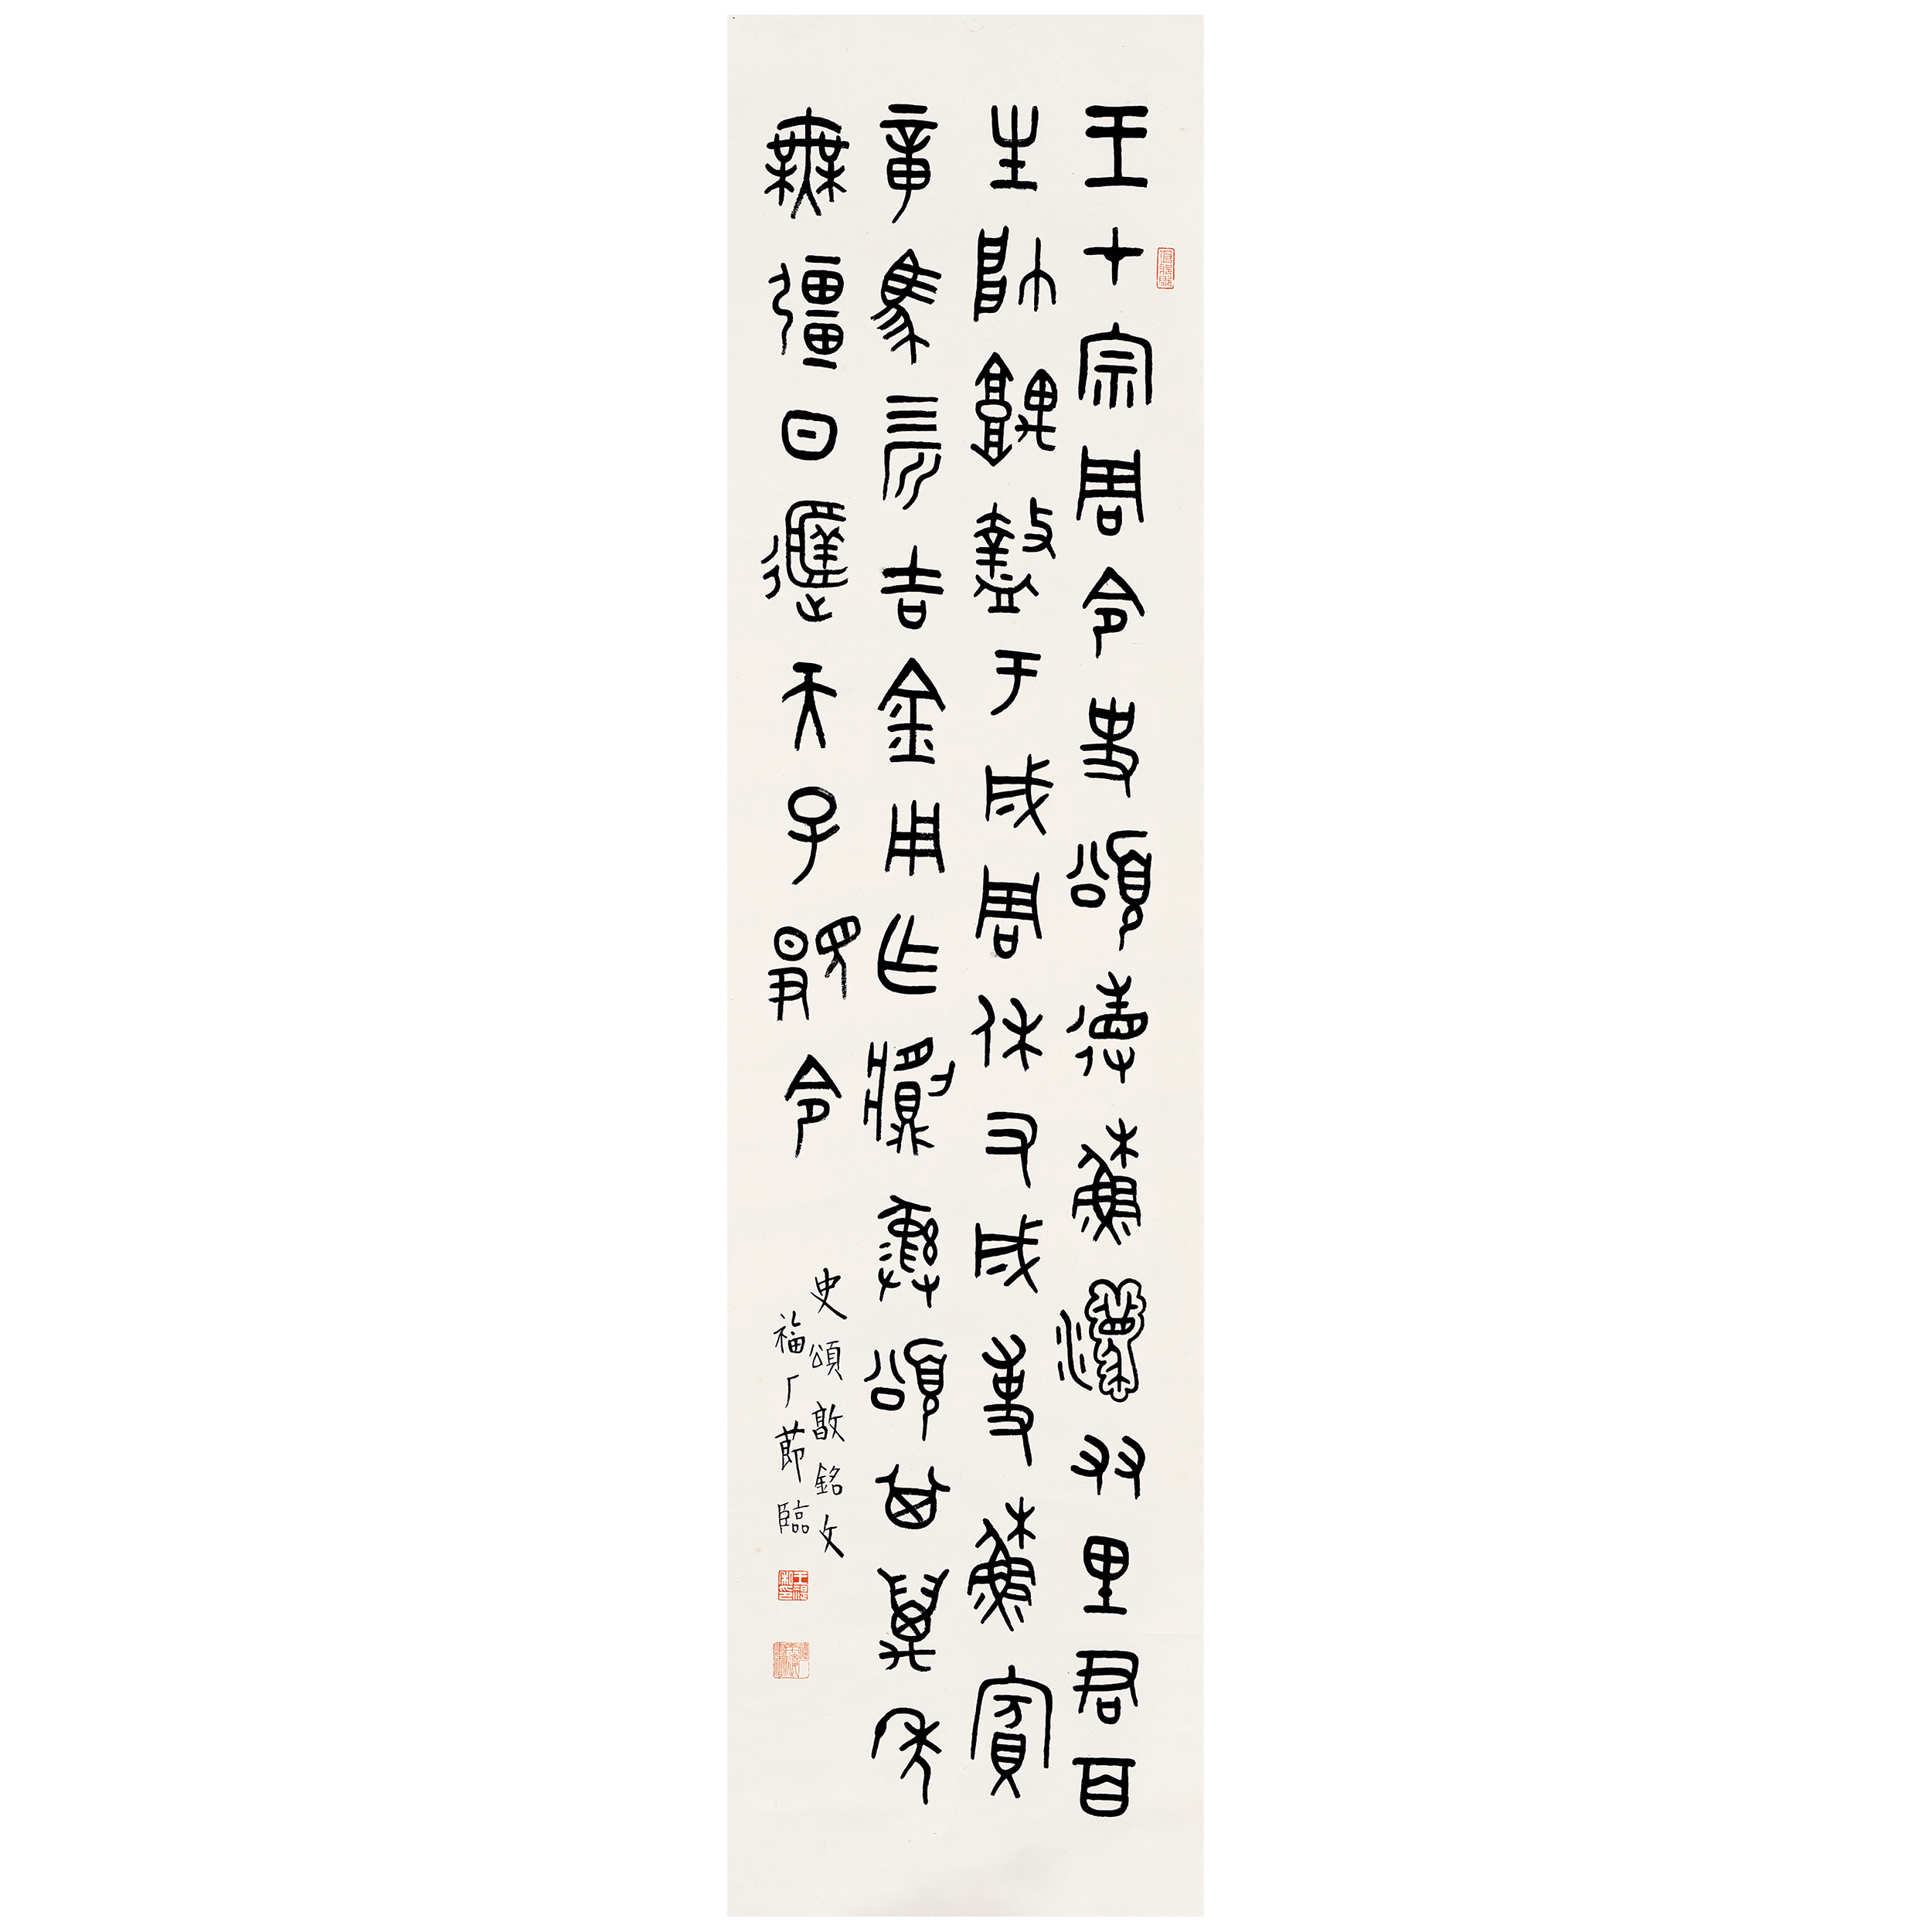 王才宗周令史頌德穌友里君百
生帥盩于成周休又成事穌賓
章馬四匹吉金用乍䵼彝頌其萬年
無彊日天子顯令
史頌敦銘文
福厂節臨